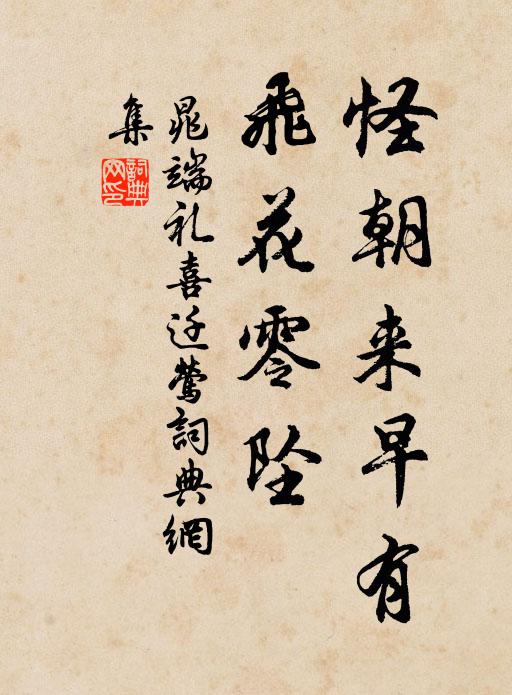 怪朝来早有
飛花零坠
晁端礼喜迁莺詞典網
集
詞典网印